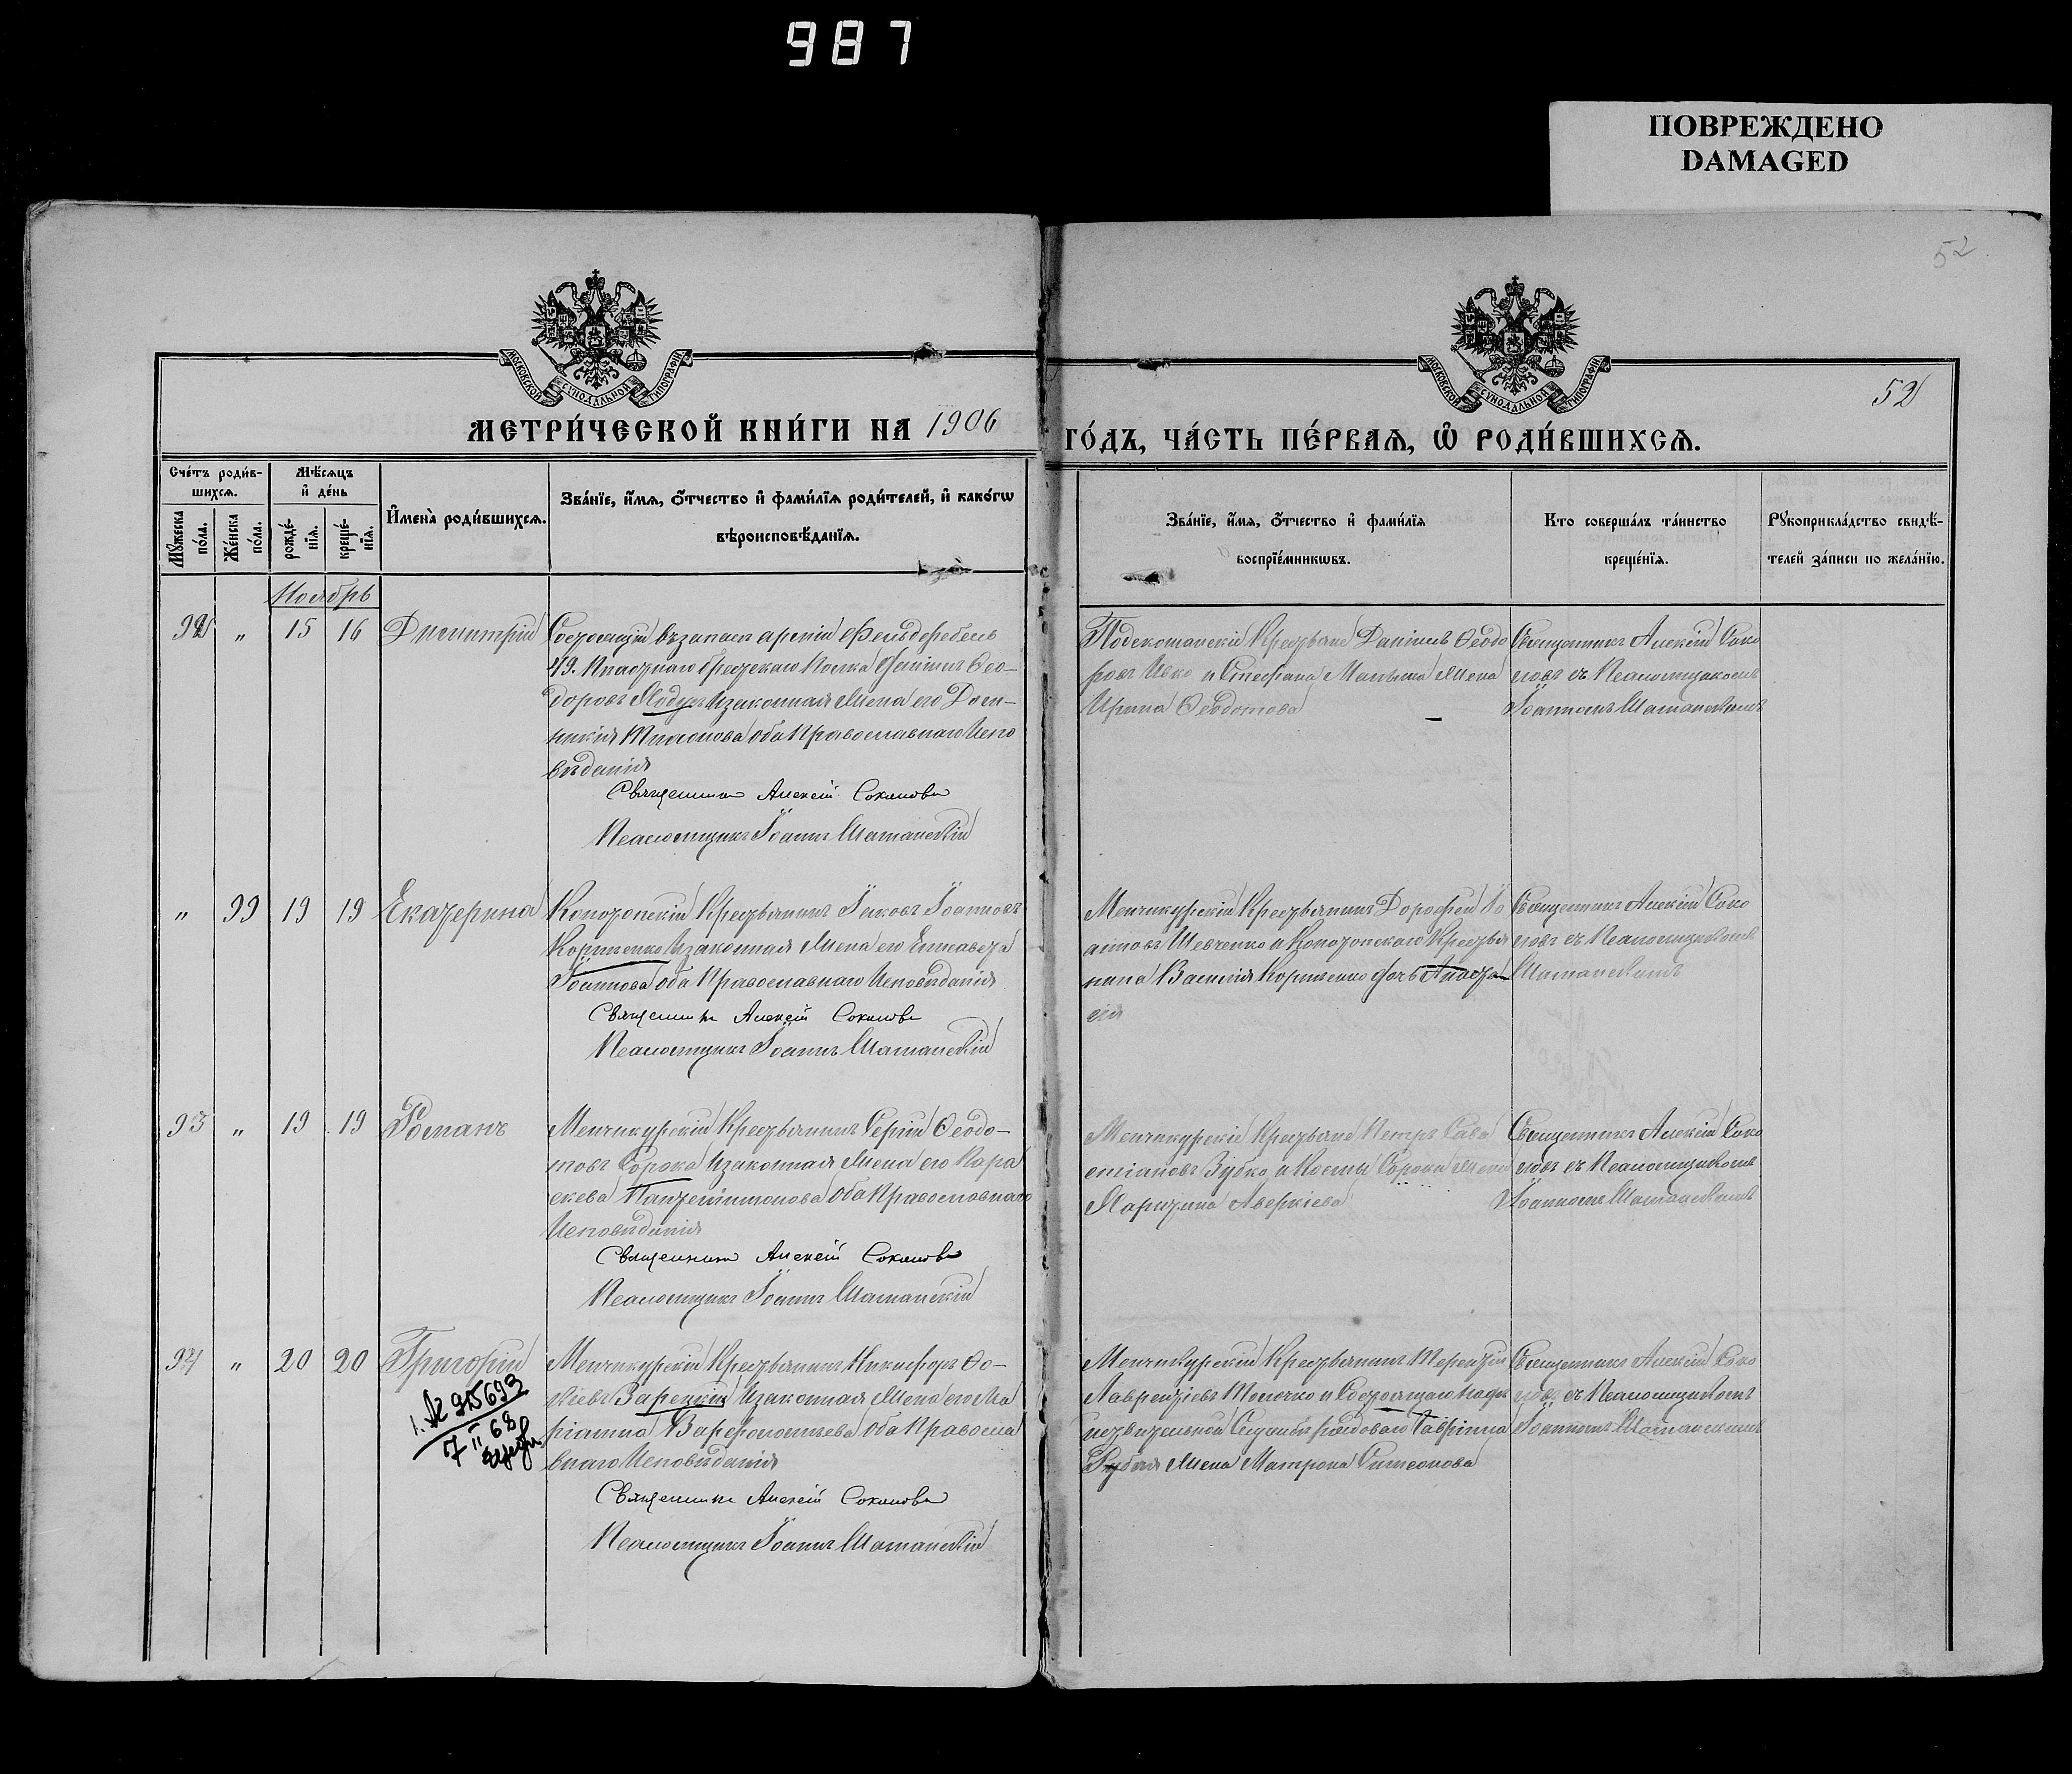 987
ПОВРЕЖДЕНО
DAMAGED
52
52
МОСКОВСКОЙ СУНОДАЛЬНОЙ ТИПОГРАФІИ
МОСКОВСКОЙ СУНОДАЛЬНОЙ ТИПОГРАФІИ
МЕТРИ́ЧЕСКОЙ КНИ́ГИ НА 1906 ГО́ДЪ, ЧА́СТЬ ПЕ́РВАѦ, Ѡ҆ РОДИ́ВШИХСѦ.
Сче́тъ роди́в-
шихсѧ.
Мѣ́сѧцъ
и҆ де́нь
Мꙋ́жеска
по́ла.
Же́нска
по́ла.
рожде́-
нїѧ.
креще́-
нїѧ.
И҆мена̀ роди́вшихсѧ.
Зва́нїе, и҆́мѧ, ѻ҆́тчество и҆ фами́лїѧ роди́телей, и҆ како́гѡ
вѣроисповѣ́данїѧ.
Зва́нїе, и҆́мѧ, ѻ҆́тчество и҆ фами́лїѧ
воспрїе́мникѡвъ.
Кто соверша́лъ та́инство
креще́нїѧ.
Рꙋкоприкла́дство свидѣ́-
телей за́писи по жела́нїю.
Ноябрь
92 „ 15 16 Димитрій
Состоящій въ запасѣ арміи Фельдфебель
49. Пѣхотнаго Брестскаго Полка Филипъ Ѳео-
доровъ и законная жена его Дом-
никія обa Православнаго Испо
вѣданія
Священникъ Алексій Соколовъ
Псаломщикъ Іоаннъ Шатанскій
Крестьяне Даніилъ Ѳеодо
ровъ Ивко и Стефана жена
Ирина Ѳеодотова
Священникъ Алексій Соко
ловъ съ Псаломщикомъ
Іоанномъ Шатанскимъ
„ 99 19 19 Екатерина
Конотопскій Крестьянинъ Іаковъ Іоанновъ
Корніенко и законная жена его Елисавета
Іоаннова оба Православнаго Исповѣданія
Священникъ Алексій Соколовъ
Псаломщикъ Іоаннъ Шатанскій
Менчикурскій Крестьянинъ Дорофей Іо
анновъ Шевченко и Конотопскаго Крестья
нина Василія Корніенко дочь Анаста
сія
Священникъ Алексій Соко
ловъ съ Псаломщикомъ
Шатанскимъ
93 „ 19 19 Романъ
Менчикурскій Крестьянинъ Сергій Ѳеодо-
товъ Сорока и законная жена его Пара
скева Пантелеимонова оба Православнаго
Исповѣданія
Священникъ Алексій Соколовъ
Псаломщикъ Іоаннъ Шатанскій
Менчикурскіе Крестьяне Петръ Сава
стіановъ Зубко и Космы Сороки жена
Харитина Аверкіева
Священникъ Алексій Соко
ловъ съ Псаломщикомъ
Іоанномъ Шатанскимъ
94 „ 20 20 Григорій
Менчикурскій Крестьянинъ Никифоръ Ѳо-
кіевъ Зарецкій и законная жена его Ма
ріанна Варфоломеева оба Правосла
внаго Исповѣданія
Священникъ Алексій Соколовъ
Псаломщикъ Іоаннъ Шатанскій
7 II 68
Менчикурскій Крестьянинъ Терентій
Лаврентіевъ и Состоящаго на дѣй
ствительной Службѣ рядоваго Гавріила
жена Матрона Симеонова
Священникъ Алексій Соко
ловъ съ Псаломщикомъ
Іоанномъ Шатанскимъ